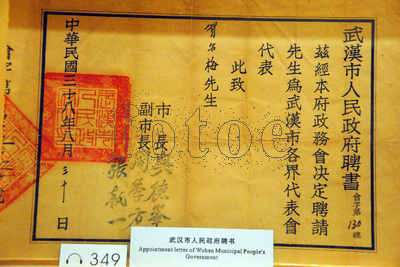 武漢市人民政府聘書
會字第130號
茲經本府政務會决定聘請
先生爲武漢市各界代表會
代表
此致
尔梅先生
市長吳德峯
副市長周季方
張執一
中華民國三十八年八月三十日
fotoe
武汉市人民政府聘书
Appointment letter of Wuhan Municipal People's
Government
349